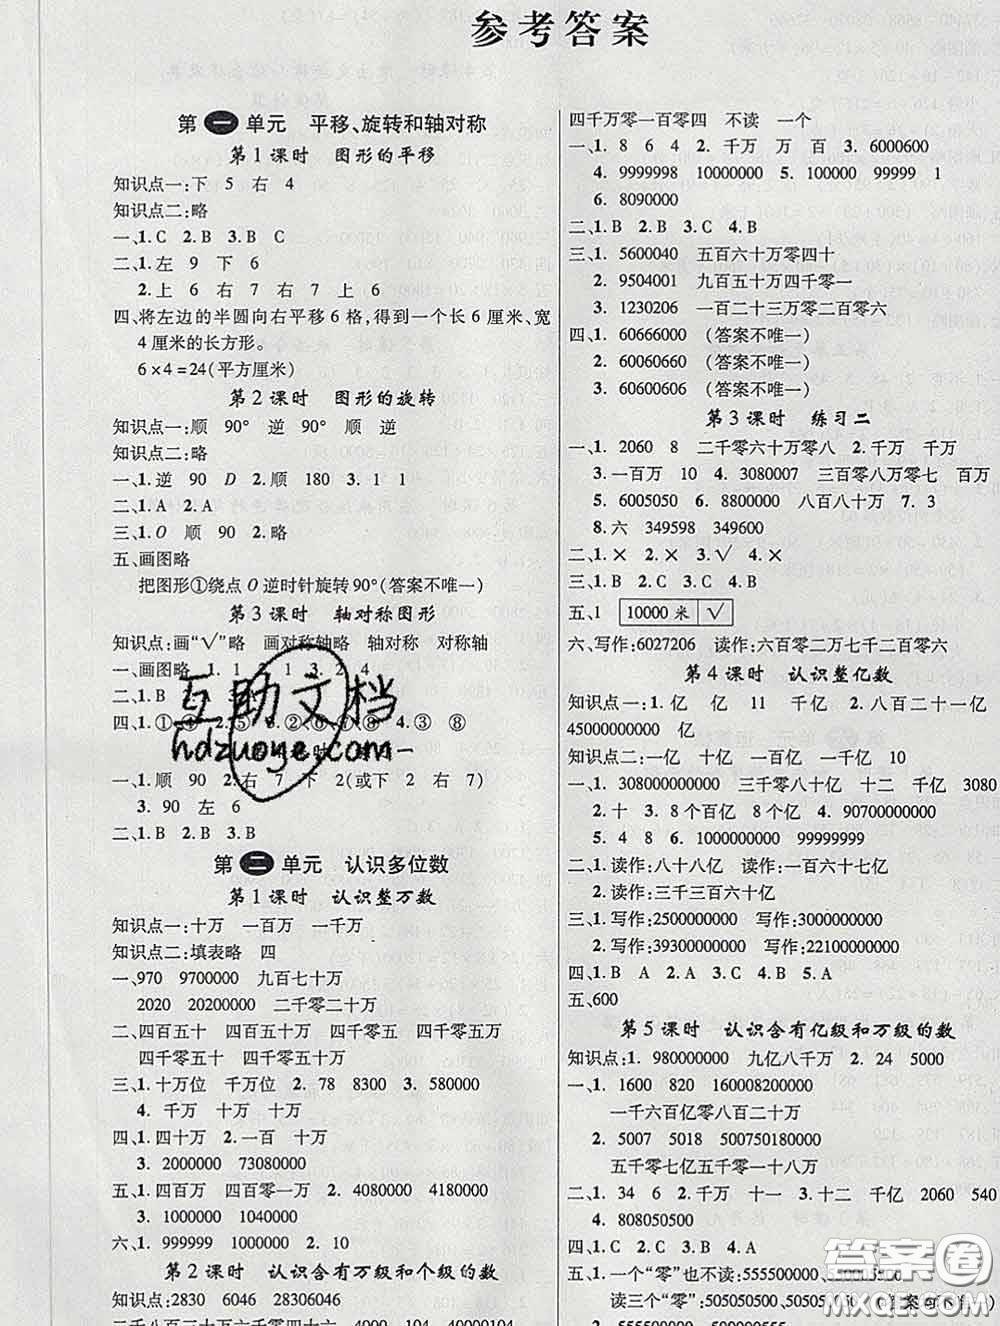 参考答案
第一单元 平移、旋转和轴对称
第1课时 图形的平移
知识点一:下 5 右 4
知识点二:略
一、1.C 2.B 3.B 4.C
二、1.左 9 下 6
2.上 6 右 7 右 7 上 6
四、将左边的半圆向右平移6格,得到一个长6厘米、宽
4厘米的长方形。
6×4=24(平方厘米)
第2课时 图形的旋转
知识点一:顺 90° 逆 90° 顺 逆
知识点二:略
一、1.逆 90 D 2.顺 180 3.1 1
二、1.A 2.A
三、1.O 顺 90 2.略
五、画图略
把图形①绕点O逆时针旋转90°(答案不唯一)
第3课时 轴对称图形
知识点:画“√”略 画对称轴略 轴对称 对称轴
一、画图略 1 1 2 1 3 2 4
二、1.B
四、1.① ④ 2.⑤ 3.② ⑥ ⑦ 4.③ ⑧
一、1.顺 90 2.右 7 下 2(或下 2 右 7)
3.90 左 6
二、1.B 2.B 3.B
第二单元 认识多位数
第1课时 认识整万数
知识点一:十万 一百万 一千万
知识点二:填表略 四
一、970 9700000 九百七十万
2020 20200000 二千零二十万
二、四百五十 四百五十万 四千零五 四千零五万
四千零五十 四千零五十万
三、1.十万位 千万位 2.78 8300 3.580000
4.千万 十万 十万
四、1.四十万 2.一百 十万
3.2000000 73080000
五、1.四百万 四百零一万 2.4080000 4180000
3.1000000 1040000
六、1.999999 1000000 2.10
第2课时 认识含有万级和个级的数
知识点:2830 6046 28306046
二千八百三十万六千零四十六 4004 0104 40040104
四千万零一百零四 不读 一个
一、1.8 6 4 2.千万 万 百 3.6000600
4.9999998 10000000 5.100000 99999 1
6.8090000
二、1.B 2.B 3.C 4.B
三、1.5600040 五百六十万零四十
2.9504001 九百五十万四千零一
3.1230206 一百二十三万零二百零六
四、1.60666000 (答案不唯一)
2.60060660 (答案不唯一)
3.60600606 (答案不唯一)
第3课时 练习二
一、1.2060 8 二千零六十万零八 2.千万 千万
3.一百万 10 4.3080007 三百零八万零七 百万
5.6005050 6.8800000 八百八十万 7.3
8.六 349598 349600
二、1.× 2.× 3.√ 4.×
三、1.B 2.C 3.C
五、1 10000米 √
六、写作:6027206 读作:六百零二万七千二百零六
第4课时 认识整亿数
知识点一:1.亿 亿 11 千亿 2.八百二十一亿
45000000000 亿
知识点二:一亿 十亿 一百亿 一千亿 10
一、1.308000000000 三千零八十亿 十二 千亿 亿
2.十 3.8个百亿 8个亿 4.90700000000
5.4 8 6.1000000000 99999999
二、1.读作:八十八亿 读作:一百六十七亿
2.读作:三千三百六十亿
三、1.写作:2500000000 写作:3000000000
2.写作:39300000000 写作:22100000000
四、1.B A 2.A 3.C
五、600
第5课时 认识含有亿级和万级的数
知识点:1.980000000 九亿八千万 2.24 5000
一、1.1600 820 160008200000
一千六百亿零八百二十万
2.5007 5018 500750180000
五千零七亿五千零一十八万
二、1.34 6 2.千万 十一 3.十二 千亿 2060 540
4.808050500
四、1.C 2.C 3.B 4.A
五、1.一个“零”也不读:555500000、
读三个“零”:505050500、
互助文档
hdzuoye.com
答案圈